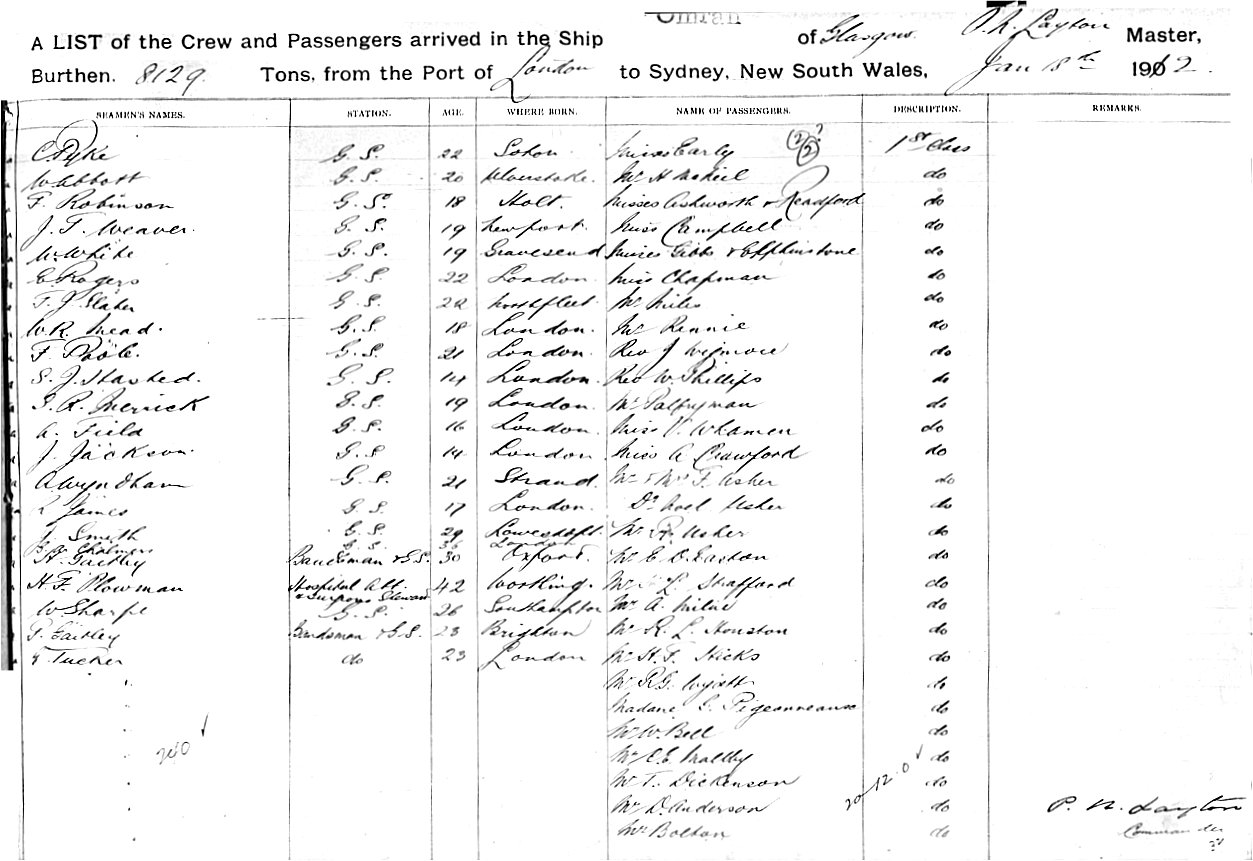 Omrah
A LIST of the Crew and Passengers arrived in the Ship of Glasgow. P. N. Layton Master,
Burthen. 8129. Tons, from the Port of London to Sydney, New South Wales, Jan 18th 1912.
SEAMEN'S NAMES. STATION. AGE. WHERE BORN. NAME OF PASSENGERS. DESCRIPTION. REMARKS.
C Pyke G. S. 22 Soton Misses Early (2/2)? 1st Class
W Abbott G. S. 20 Mr H McNeil do
F. Robinson G. S. 18 Holt. Misses Ashworth & Readford do
J. T. Weaver. G. S. 19 Newport. Miss Campbell do
W. White G. S. 19 Gravesend Misses Gibbs & Elphinstone do
C Rogers G. S. 22 London. Miss Chapman do
T. J. Slater G. S. 22 Northfleet Mr Miles do
W. R. Mead. G. S. 18 London. Mr Rennie do
F. Poole. G. S. 21 London. Rev J Wigmore do
S. J. Hasted. G. S. 14 London. Rev W. Phillips do
R. Merrick G. S. 19 London. Mr Palfryman do
A. Field G. S. 16 London. Miss V. Whamen do
J. Jackson. G. S. 14 London. Miss A Crawford do
A Wyndham G. S. 21 Strand. Mr & Mrs F. Usher do
James G. S. 17 London. Dr Noel Usher do
Smith G. S. 29 Lowestoft. Mr R. Usher do
Chalmers G. S. 36 London
Gaitley Bandsman & G.S. 30 Oxford. Mr E. O. Easton do
H. F. Plowman Hospital Att. & Surgeons Steward 42 Worthing. Mr L. Strafford do
W Sharpe G. S. 26 Southampton Mr A. Milne do
Gaitley Bandsman & G.S. 23 Brighton Mr R. L. Houston do
Tucker do 23 London Mr H. F. Hicks do
Mr R. G. Wyatt do
Madame G. Pigeonneause do
Mr W. Bell do
240 Mr C. E. Maltby do
Mr T. Dickenson do
20-12-0 Mr D. Anderson do P. N. Layton
Mr Bolton do Commander